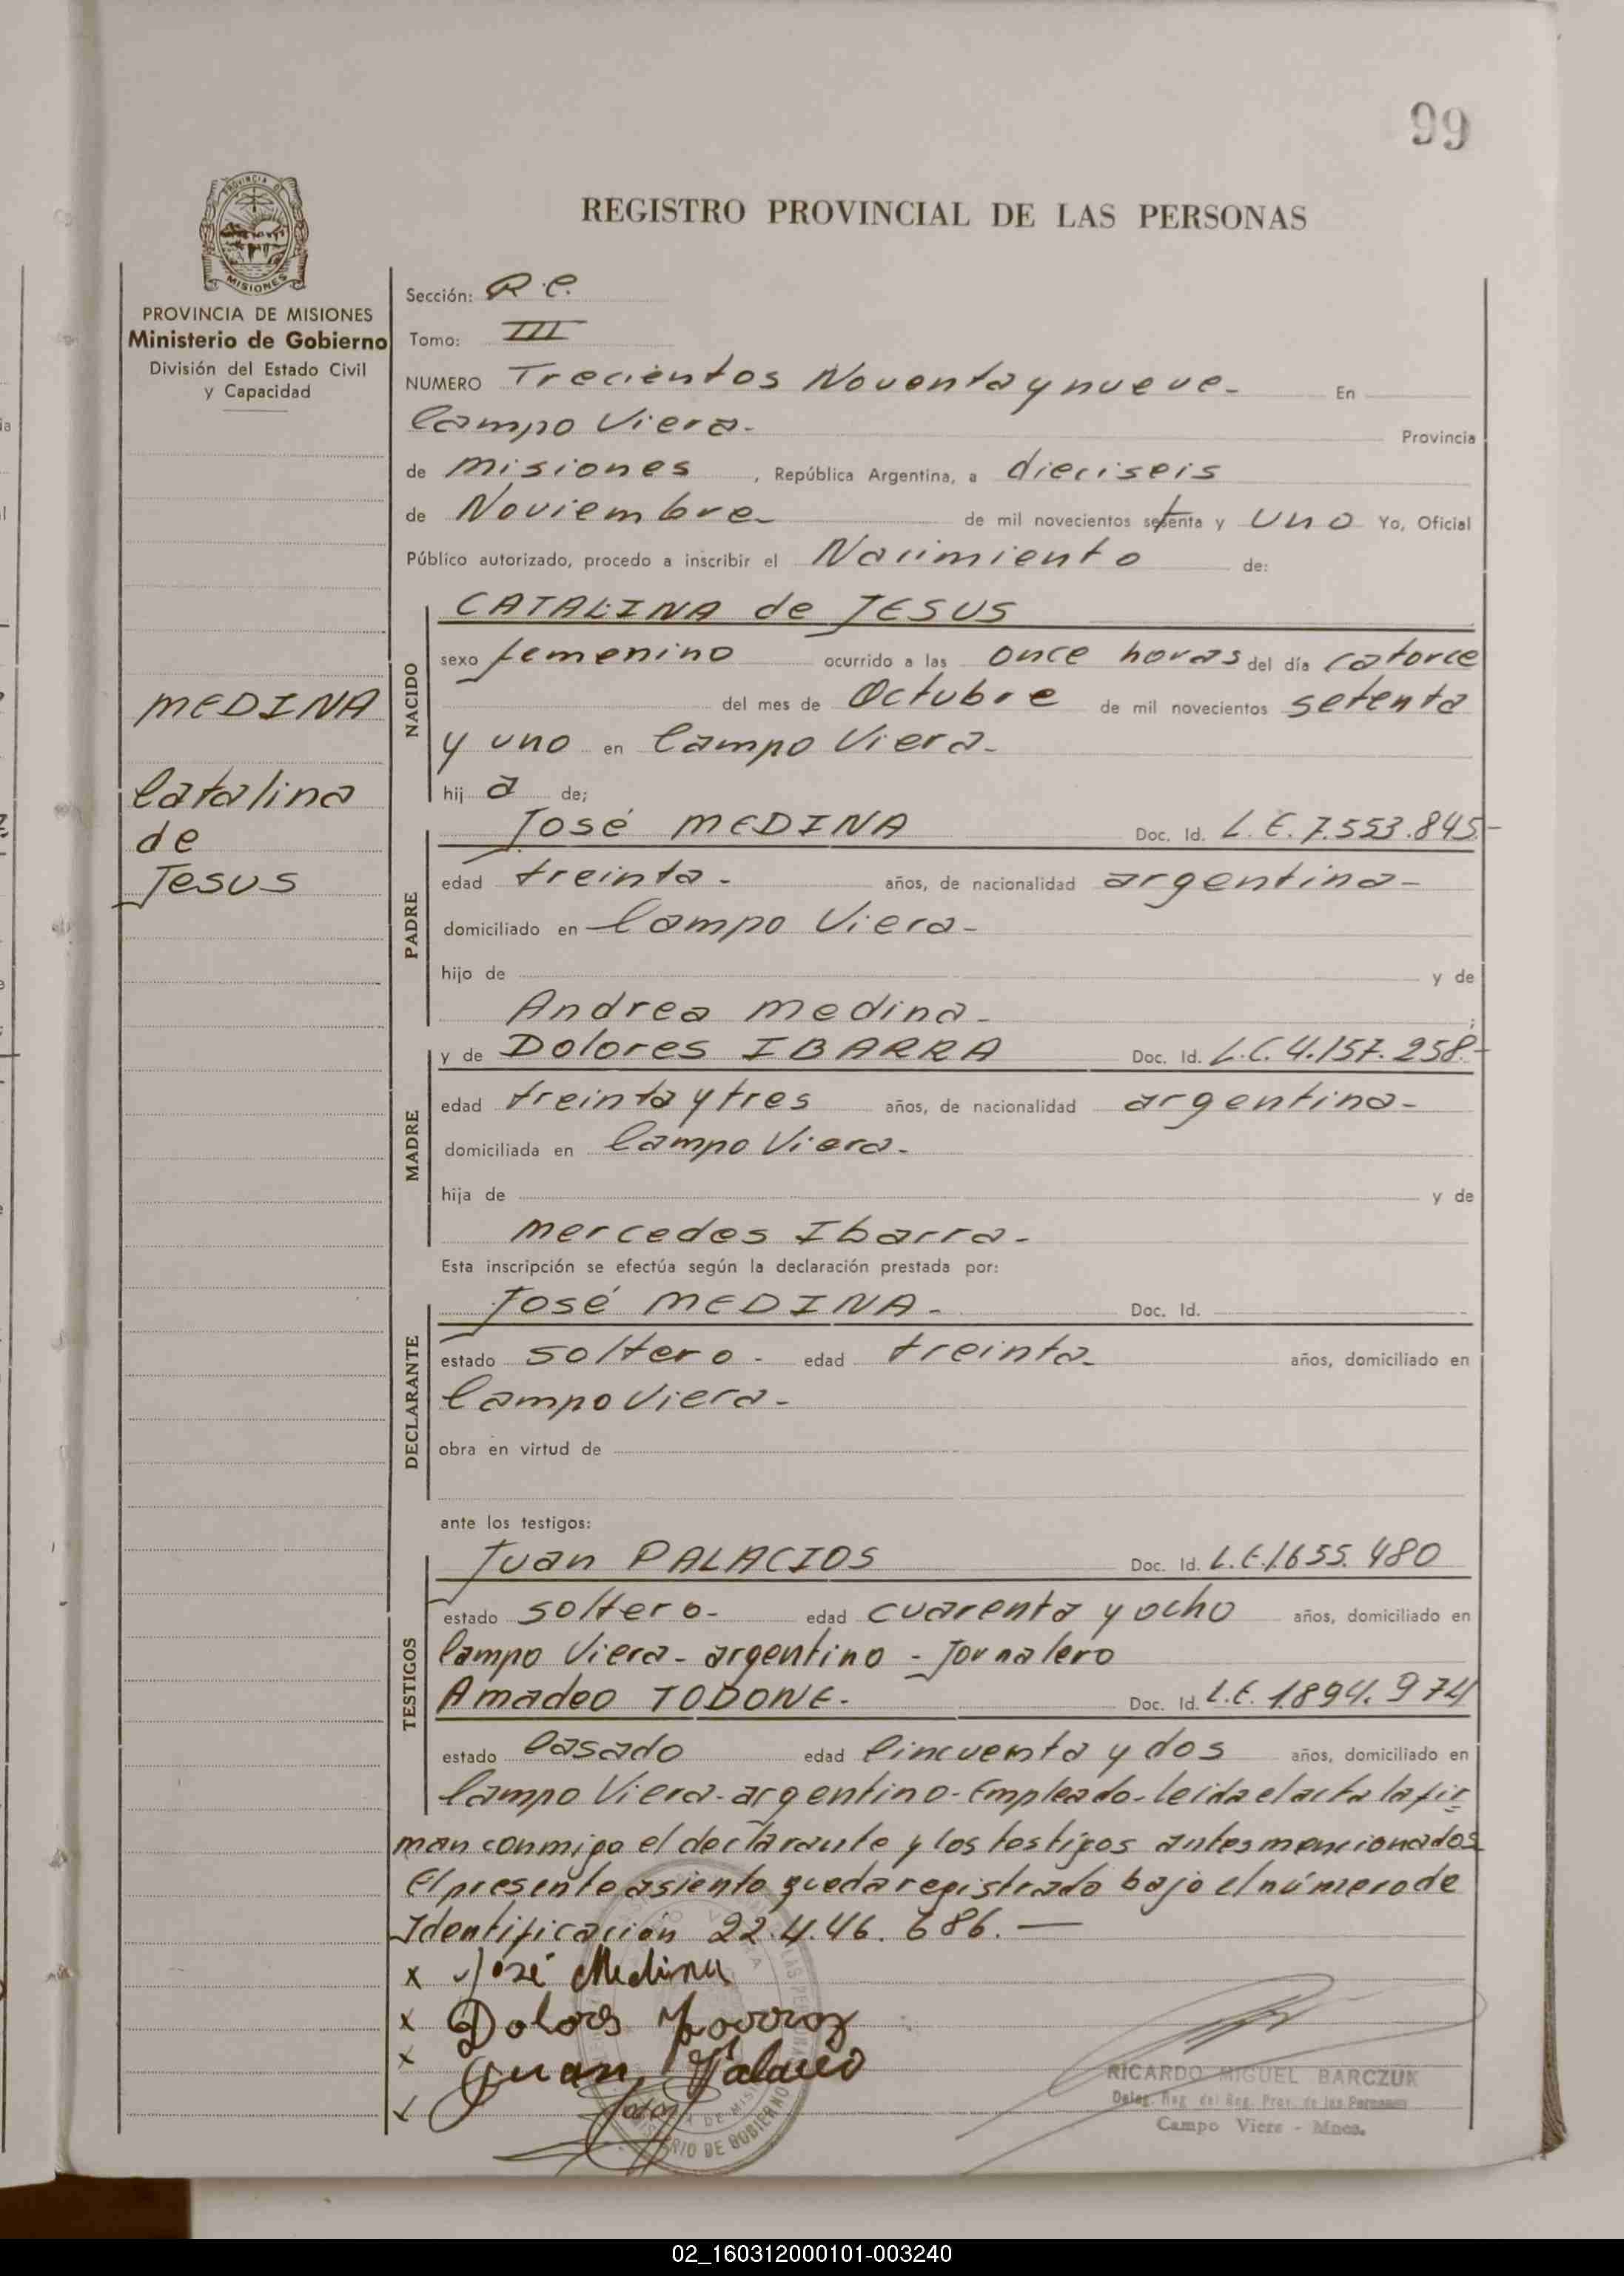 99
REGISTRO PROVINCIAL DE LAS PERSONAS
PROVINCIA DE MISIONES
Ministerio de Gobierno
División del Estado Civil
y Capacidad
MEDINA
Catalina
de
Jesus
Sección: R.C.
Tomo: III
NUMERO Trecientos Noventa y nueve- En
Campo Viera- Provincia
de Misiones, República Argentina, a dieciseis
de Noviembre- de mil novecientos setenta y uno Yo, Oficial
Público autorizado, procedo a inscribir el Nacimiento de:
NACIDO
CATALINA de JESUS
sexo femenino ocurrido a las once horas del día catorce
del mes de Octubre de mil novecientos setenta
y uno en Campo Viera-
hij a de;
PADRE
José MEDINA Doc. Id. L.E. 7.553.845-
edad treinta- años, de nacionalidad argentina-
domiciliado en Campo Viera-
hijo de y de
Andrea Medina- ;
MADRE
y de Dolores IBARRA Doc. Id. L.C. 4.157.258-
edad treinta y tres años, de nacionalidad argentina-
domiciliada en Campo Viera-
hija de y de
Mercedes Ibarra-
Esta inscripción se efectúa según la declaración prestada por:
DECLARANTE
José MEDINA- Doc. Id.
estado soltero- edad treinta- años, domiciliado en
Campo Viera-
obra en virtud de
ante los testigos:
TESTIGOS
Juan PALACIOS Doc. Id. L.E. 1.655.480
estado soltero- edad cuarenta y ocho años, domiciliado en
Campo Viera- argentino - Jornalero
Amadeo TODONE- Doc. Id. L.E. 1.894.974
estado Casado edad Cincuenta y dos años, domiciliado en
Campo Viera-argentino-Empleado-leida el acta la fir=
man conmigo el declarante y los testigos antes mencionados
El presente asiento queda registrado bajo el número de
Identificación 22.4.46.686.—
x José Medina
x Dolores
x Juan Palacio
RICARDO MIGUEL BARCZUK
Deleg. Reg. del Reg. Prov. de las Personas
Campo Viera - Mnes.
MINISTERIO DE GOBIERNO
02_160312000101-003240